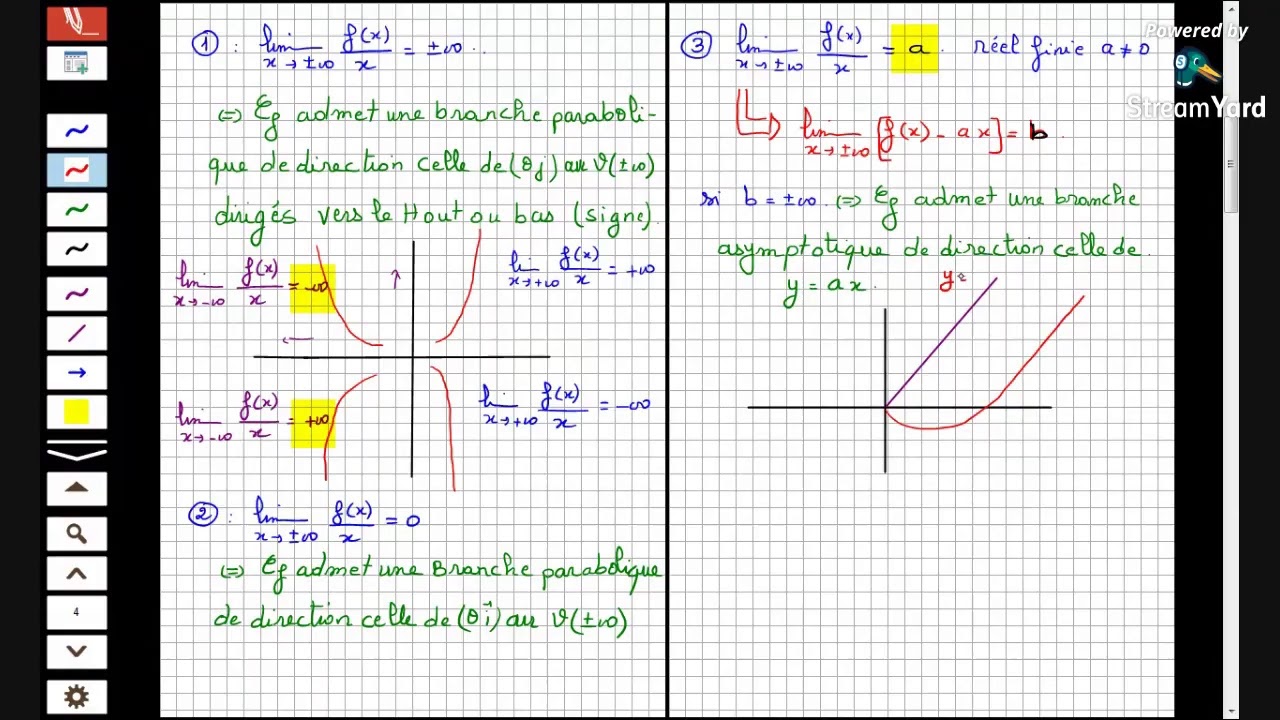 ① : lim f(x)/x = ±∞ ..
x→±∞
⇔ Cf admet une branche paraboli-
que de direction celle de (Oj) au V(±∞)
dirigés vers le Hout ou bas (signe).
lim f(x)/x = -∞
x→-∞
lim f(x)/x = +∞
x→+∞
lim f(x)/x = +∞
x→-∞
lim f(x)/x = -∞
x→+∞
② : lim f(x)/x = 0
x→±∞
⇔ Cf admet une Branche parabolique
de direction celle de (Oi) au V(±∞)
③ lim f(x)/x = a . réel finie a≠0
x→±∞
lim [f(x) - ax] = b .
x→±∞
si b = ±∞ . ⇔ Cf admet une branche
asymptotique de direction celle de .
y = ax .
y=
4
Powered by
StreamYard